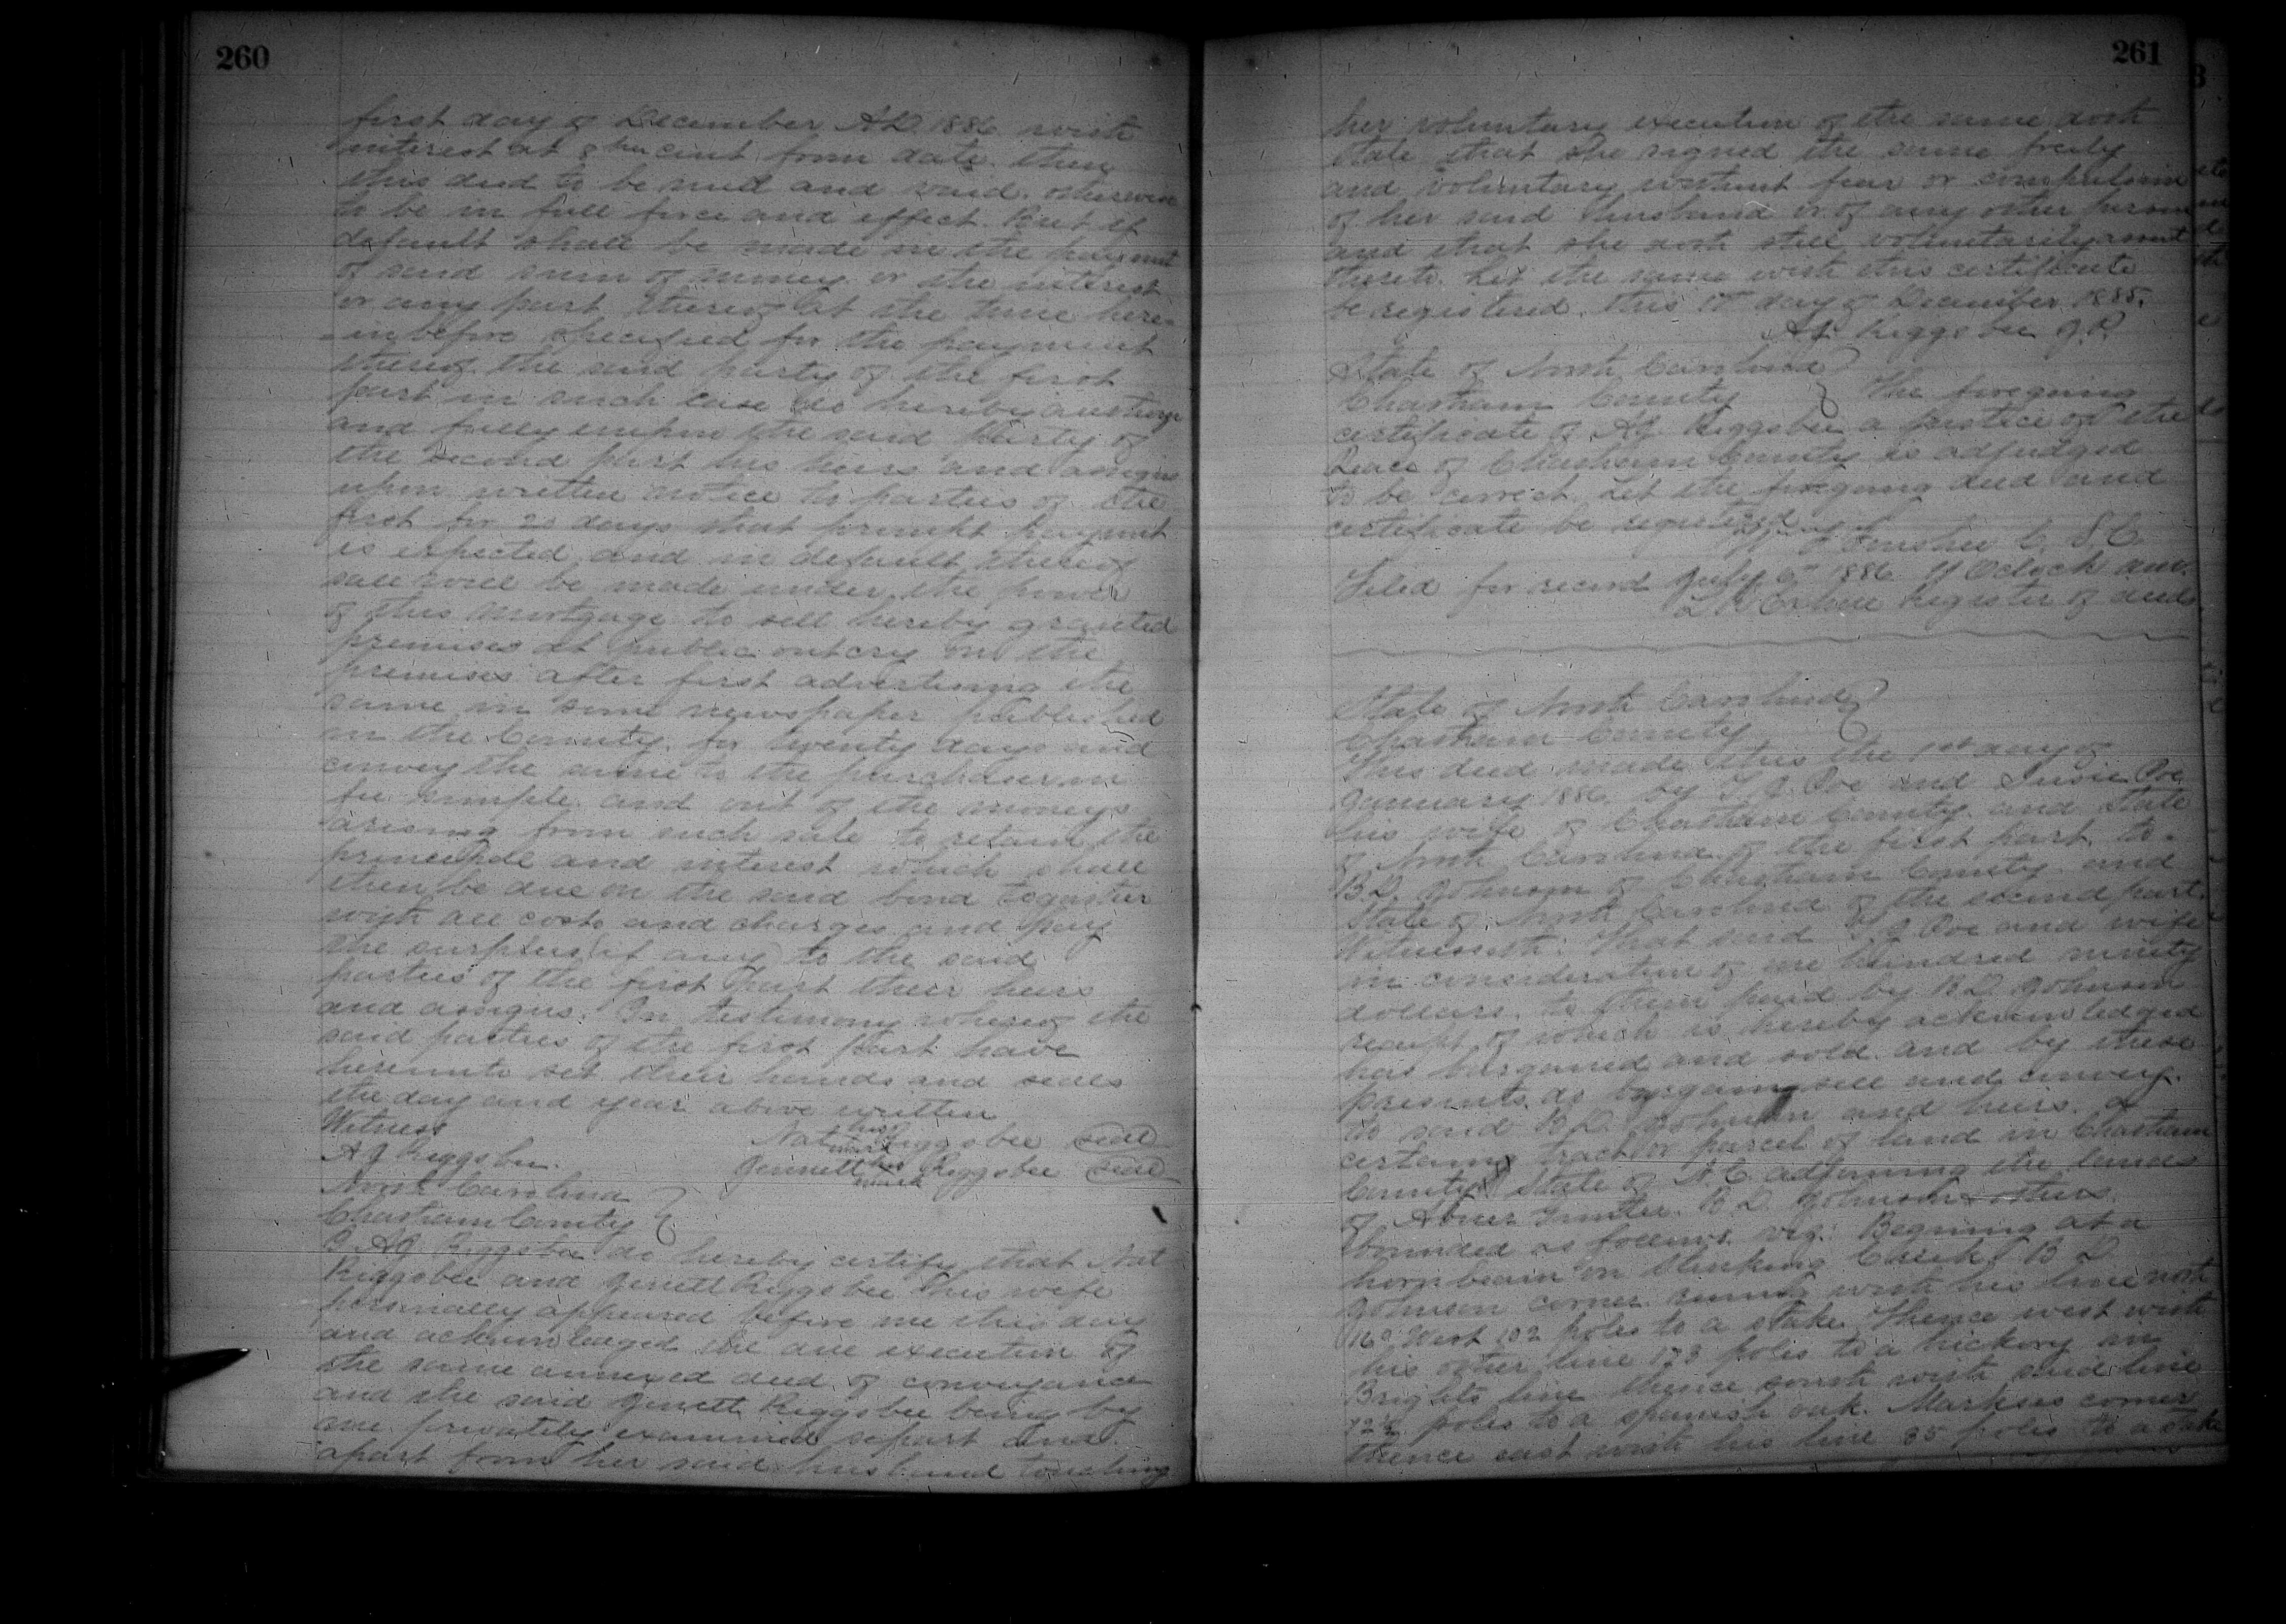 260
first day of December A.D. 1886 with
interest at 8 per cent from date. then
this deed to be null and void. otherwise
to be in full force and effect. But if
default shall be made in the payment
of said sum of money or the interest
or any part thereof at the time here=
=inbefore specified for the payment
thereof the said party of the first
part in such case do hereby authorize
and fully empower the said party of
the second part his heirs and assigns
upon written notice to parties of the
first for 20 days that prompt payment
is expected and in default thereof
sale will be made under the power
of this mortgage to sell hereby granted
premises at public outcry on the
premises after first advertising the
same in some newspaper published
in the County for twenty days and
convey the same to the purchaser in
fee simple. and out of the moneys
arising from such sale to retain the
principle and interest which shall
then be due on the said bond together
with all costs and charges and pay
the surplus (if any) to the said
parties of the first part their heirs
and assigns. In testimony whereof the
said parties of the first part have
hereunto set their hands and seals
the day and year above written
Witness
Nat his x mark Riggsbee seal
A J Riggsbee.
Jennett her x mark Riggsbee seal
North Carolina
Chatham County
I A J Riggsbee do hereby certify that Nat
Riggsbee and Jenett Riggsbee his wife
personally appeared before me this day
and acknowledged the due execution of
the same annexed deed of conveyance
and the said Jenett Riggsbee being by
me privately examined separt and
apart from her said husband touching
261
her voluntary execution of the same doth
state that she signed the same freely
and voluntary without fear or compulsion
of her said husband or of any other person
and that she doth still voluntarily assent
thereto. Let the same with this certificate
be registered. This 1st day of December 1885.
A J. Riggsbee J.P.
State of North Carolina
Chatham County The foregoing
certificate of A J. Riggsbee a justice of the
Peace of Chatham County is adjudged
to be correct. Let the foregoing deed and
certificate be registered.
Foushee C. S. C
Filed for record July 6th 1886 11 Oclock am.
Register of deeds
State of North Carolina
Chatham County
This deed made this the 1st day of
January 1886. by T. J. Poe and Susie Poe
his wife of Chatham County and State
of North Carolina of the first part, to=
B.D. Johnson of Chatham County and
State of North Carolina of the second part.
Witnesseth: that said T J Poe and wife
in consideration of one hundred ninety
dollars. to them paid by B D. Johnson
receipt of which is hereby acknowledged
has bargained and sold. and by these
presents do bargain sell and convey
to said B.D. Johnson and heirs. a
certaing tract or parcel of land in Chatham
County State of N.C. adjoining the lands
of Abner Gunter. B. D. Johnson others.
bounded as follows. viz: Begning at a
hornbeam on Stinking Creek B D
Johnson corner. runing with his line north
16° West 102 poles to a stake Thence west with
his other line 173 poles to a hickory in
Brights line thence south with said line
72½ poles to a spanish oak. Markses corner
thence east with his line 35 poles to a stake